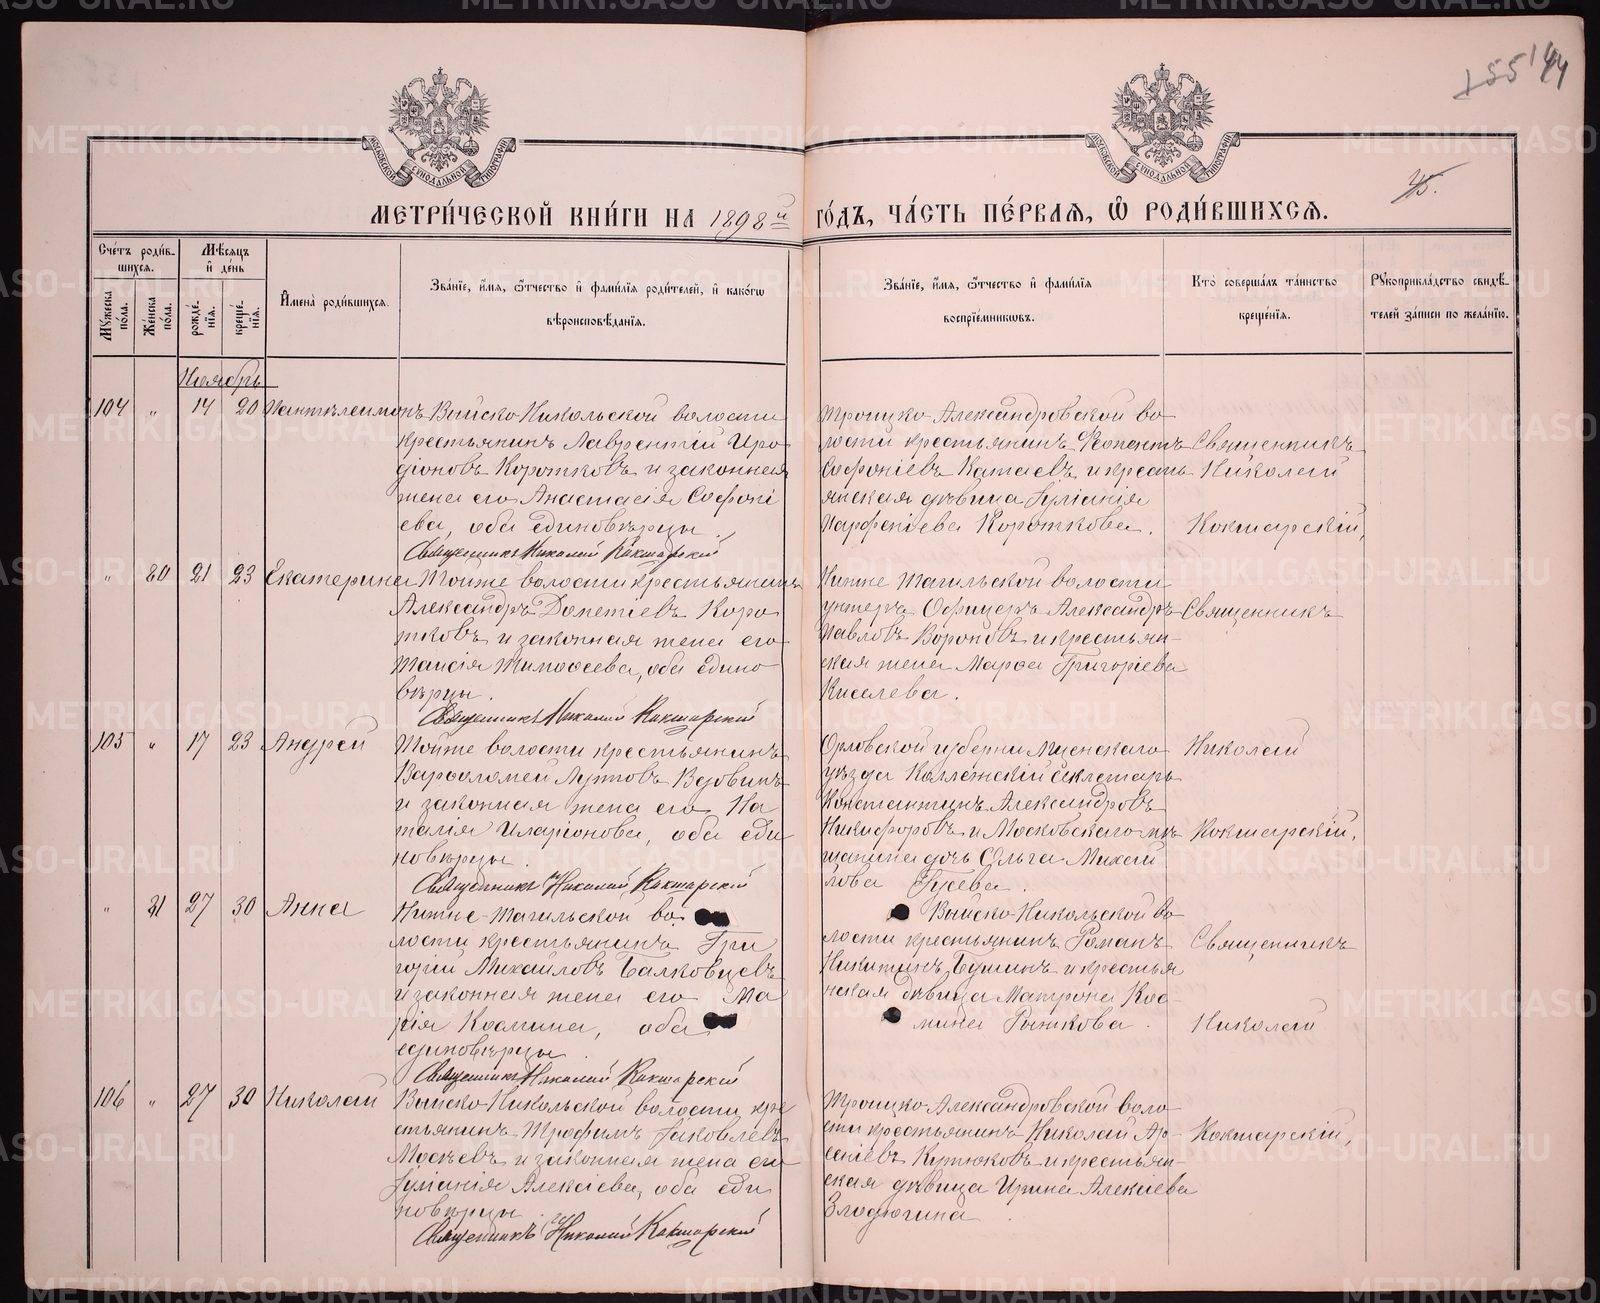 155 144
45.
МОСКОВСКОЙ СѴНОДАЛЬНОЙ ТИПОГРАФІИ
МОСКОВСКОЙ СѴНОДАЛЬНОЙ ТИПОГРАФІИ
МЕТРИ́ЧЕСКОЙ КНИ́ГИ НА 1898й ГО́ДЪ, ЧА́СТЬ ПЕ́РВАЯ, Ѽ РОДИ́ВШИХСЯ.
Сче́тъ роди́вшихся.
Мꙋжеска по́ла.
Же́нска по́ла.
Мѣ́сяцъ и҆ де́нь
рожде́нїя.
креще́нїя.
И҆мена̀ роди́вшихся.
Зва́нїе, и҆́мя, ѻ҆́тчество и҆ фами́лїя роди́телей, и҆ како́гѡ вѣроисповѣ́данїя.
Зва́нїе, и҆́мя, ѻ҆́тчество и҆ фами́лїя воспрїе́мникѡвъ.
Кто̀ соверша́лъ та́инство креще́нїя.
Рꙋкоприкла́дство свидѣ́телей за́писи по жела́нїю.
Ноябрь
104 „ 14 20 Пантелеимонъ
Выйско-Никольской волости
крестьянинъ Лаврентій Иро
діоновъ Коротковъ и законная
жена его Анастасія Софоні
ева, оба единовѣрцы.
Священникъ Николай Кокшарскій
Троицко-Александровской во
лости крестьянинъ Ѳеопентъ
Софоніевъ Катаевъ и кресть
янская дѣвица Іуліанія
Парфеніева Короткова.
Священникъ
Николай
Кокшарскій,
„ 80 21 23 Екатерина
Тойже волости крестьянинъ
Александръ Дометіевъ Коро
тковъ и законная жена его
Таисія Тимоѳеева, оба едино
вѣрцы.
Священникъ Николай Кокшарскій
Нижне Тагильской волости
унтеръ Офицеръ Александръ
Павловъ Вороновъ и крестьян-
ская жена Марѳа Григоріева
Киселева.
Священникъ
105 „ 17 23 Андрей
Тойже волости крестьянинъ
Варѳоломей Лутовъ Вдовинъ
и законная жена его На
талія Иларіонова, оба еди
новѣрцы.
Священникъ Николай Кокшарскій
Орловской губерніи Мценскаго
уѣзда Коллежскій секлетарь
Константинъ Александровъ
Никифоровъ и Московскаго мѣ
щанина дочь Ольга Михай
лова Гусева.
Николай
Кокшарскій,
„ 81 27 30 Анна
Нижне-Тагильской во
лости крестьянинъ Гри
горій Михайловъ Балковцевъ
и законная жена его Ма
рія Космина, оба
единовѣрцы.
Священникъ Николай Кокшарскій
Выйско-Никольской во
лости крестьянинъ Романъ
Никитинъ Бушинъ и крестья
нская дѣвица Матрона Кос-
мина Рыжкова.
Священникъ
Николай
106 „ 27 30 Николай
Выйско-Никольской волости кре
стьянинъ Трофимъ Іаковлевъ
Мосѣевъ и законная жена его
Іуліанія Алексіева, оба еди
новѣрцы.
Священникъ Николай Кокшарскій
Троицко-Александровской воло-
сти крестьянинъ Николай Ар-
сеніевъ Кутюковъ и крестьян-
ская дѣвица Ирина Алексіева
Злодюгина.
Кокшарскій,